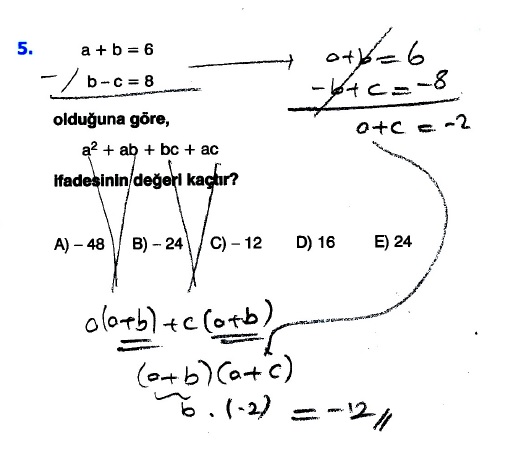 5.
a + b = 6
b – c = 8
a+b = 6
-b+c = -8
a+c = -2
olduğuna göre,
a² + ab + bc + ac
ifadesinin değeri kaçtır?
A) – 48 B) – 24 C) – 12 D) 16 E) 24
a(a+b)+c(a+b)
(a+b)(a+c)
6 . (-2) = -12 //